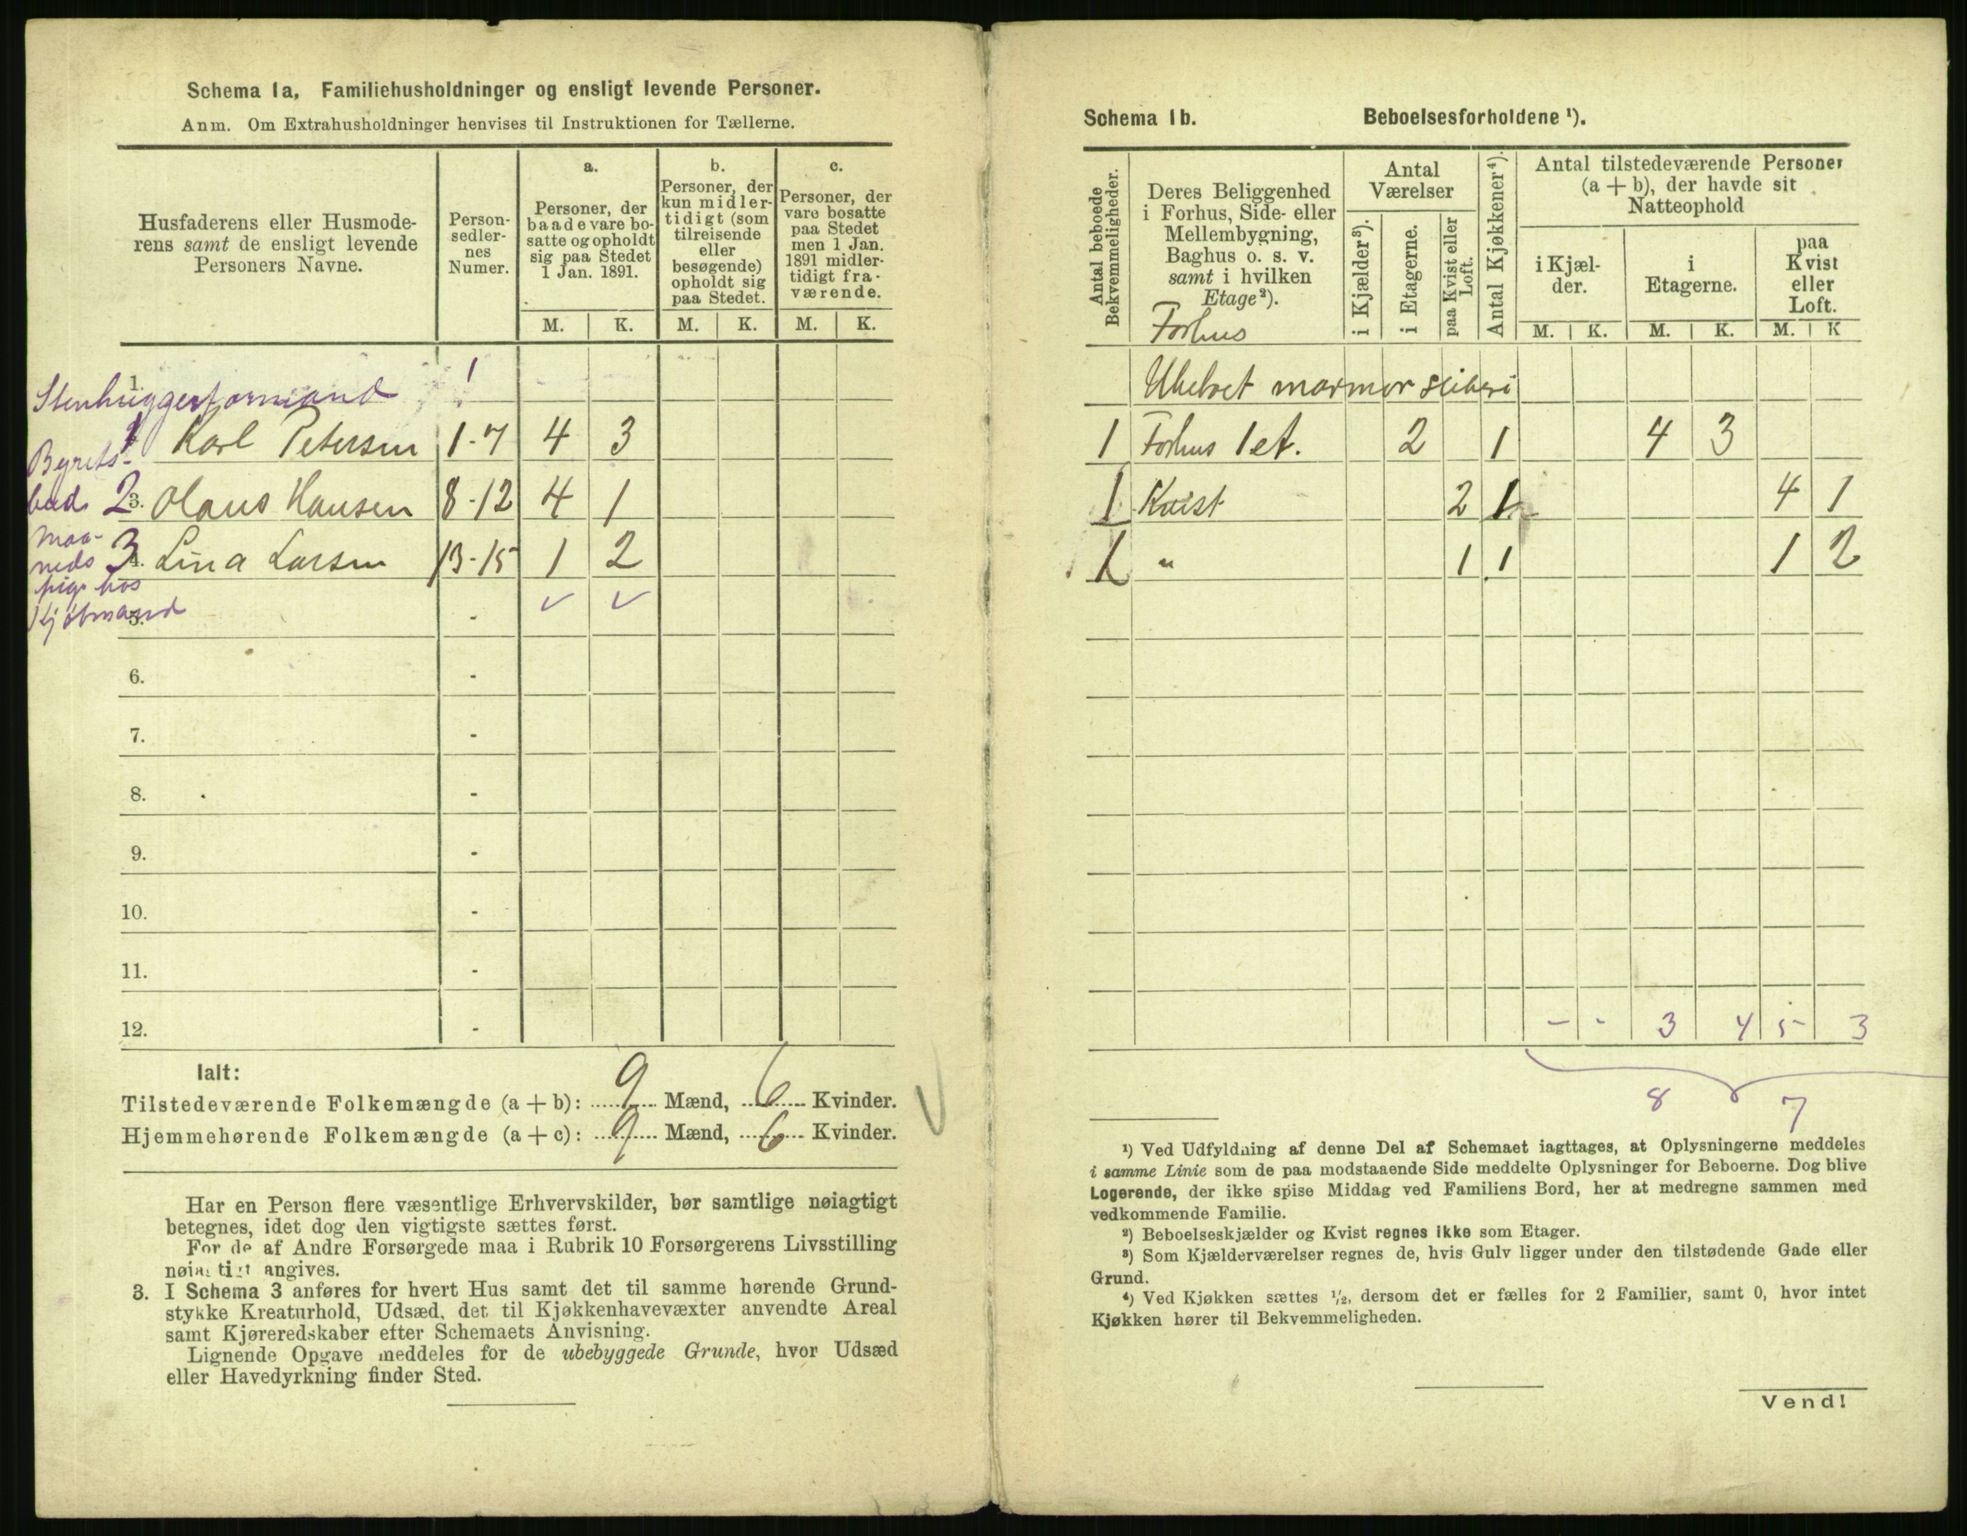 Schema 1a, Familiehusholdninger og ensligt levende Personer.
Anm. Om Extrahusholdninger henvises til Instruktionen for Tællerne.
Husfaderens eller Husmoderens samt de ensligt levende Personers Navne.
Personsedlernes Numer.
a. Personer, der baade vare bosatte og opholdt sig paa Stedet 1 Jan. 1891.
b. Personer, der kun midlertidigt (som tilreisende eller besøgende) opholdt sig paa Stedet.
c. Personer, der vare bosatte paa Stedet men 1 Jan. 1891 midlertidigt fraværende.
M. K. M. K. M. K.
1. 1
Stenhuggerformand
1 Karl Petersen 1-7 4 3
Byrets-
bud 2 3. Olaus Hansen 8-12 4 1
Maa-
neds 3 4. Lina Larsen 13-15 1 2
pige hos
Kjøbmand
5. -
6. -
7. -
8. -
9. -
10. -
11. -
12. -
Ialt:
Tilstedeværende Folkemængde (a + b): 9 Mænd, 6 Kvinder.
Hjemmehørende Folkemængde (a + c): 9 Mænd, 6 Kvinder.
Har en Person flere væsentlige Erhvervskilder, bør samtlige nøiagtigt
betegnes, idet dog den vigtigste sættes først.
For de af Andre Forsørgede maa i Rubrik 10 Forsørgerens Livsstilling
nøiagtigt angives.
3. I Schema 3 anføres for hvert Hus samt det til samme hørende Grund-
stykke Kreaturhold, Udsæd, det til Kjøkkenhavevæxter anvendte Areal
samt Kjøreredskaber efter Schemaets Anvisning.
Lignende Opgave meddeles for de ubebyggede Grunde, hvor Udsæd
eller Havedyrkning finder Sted.
Schema 1b. Beboelsesforholdene ¹).
Antal beboede Bekvemmeligheder.
Deres Beliggenhed i Forhus, Side- eller Mellembygning, Baghus o. s. v. samt i hvilken Etage²).
Forhus
Antal Værelser
i Kjælder³).
i Etagerne.
paa Kvist eller Loft.
Antal Kjøkkener⁴).
Antal tilstedeværende Personer (a + b), der havde sit Natteophold
i Kjælder.
i Etagerne.
paa Kvist eller Loft.
M. K. M. K. M. K
Ubeboet marmor sliberi
1 Forhus 1 et. 2 1 4 3
1 Kvist 2 1 4 1
1 " 1 1 1 2
- - 3 4 5 3
8 7
¹) Ved Udfyldning af denne Del af Schemaet iagttages, at Oplysningerne meddeles
i samme Linie som de paa modstaaende Side meddelte Oplysninger for Beboerne. Dog blive
Logerende, der ikke spise Middag ved Familiens Bord, her at medregne sammen med
vedkommende Familie.
²) Beboelseskjælder og Kvist regnes ikke som Etager.
³) Som Kjælderværelser regnes de, hvis Gulv ligger under den tilstødende Gade eller
Grund.
⁴) Ved Kjøkken sættes ½, dersom det er fælles for 2 Familier, samt 0, hvor intet
Kjøkken hører til Bekvemmeligheden.
Vend!